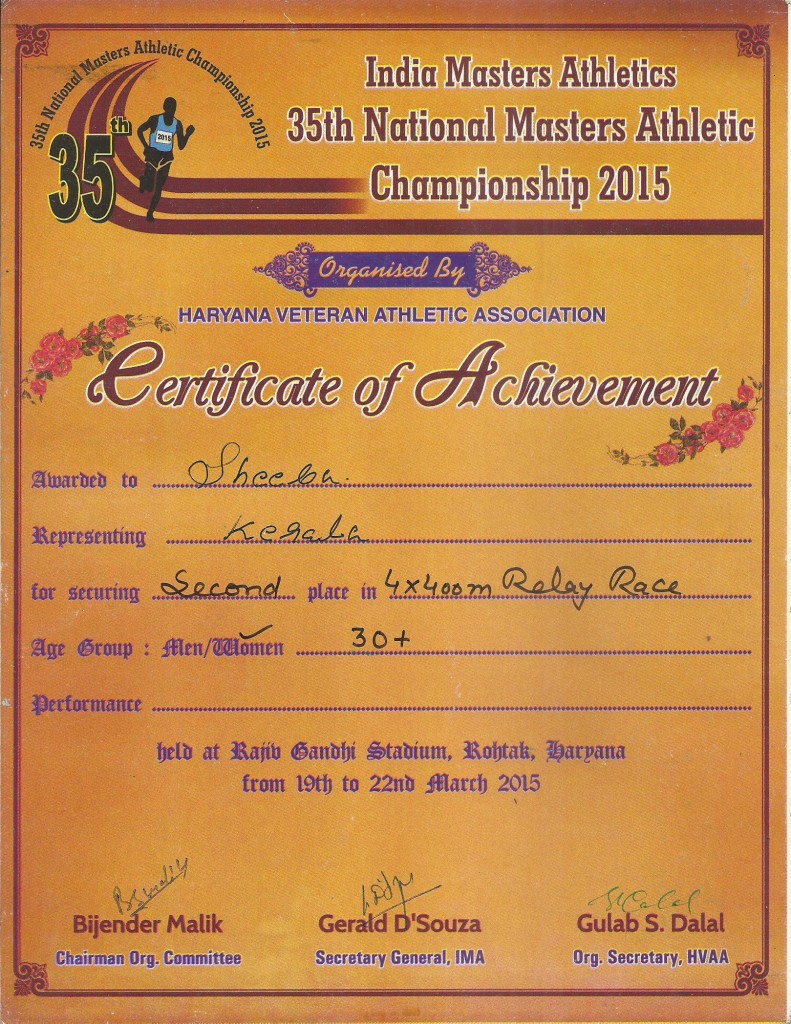 35th National Masters Athletic Championship 2015
35th
2015
India Masters Athletics
35th National Masters Athletic
Championship 2015
Organised By
HARYANA VETERAN ATHLETIC ASSOCIATION
Certificate of Achievement
Awarded to Sheeba.
Representing Kerala
for securing Second place in 4x400m Relay Race
Age Group : Men/Women 30+
Performance
held at Rajiv Gandhi Stadium, Rohtak, Haryana
from 19th to 22nd March 2015
Bijender Malik
Gerald D'Souza
Gulab S. Dalal
Chairman Org. Committee
Secretary General, IMA
Org. Secretary, HVAA